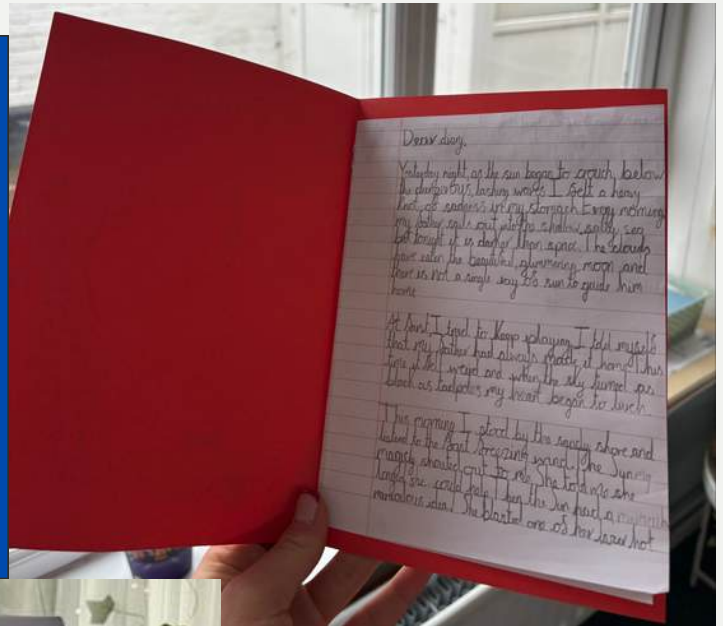 Dear diary,
Yesterday night, as the sun began to crouch below
the dangerous, lashing waves I felt a heavy
knot of sadness in my stomach. Every morning
my father sails out into the shallow, salty sea
but tonight it is darker than space. The clouds
have eaten the beautiful, glimmering moon and
there is not a single ray of sun to guide him
home
At first, I tried to keep playing. I told myself
that my father had always made it home. This
time it felt weird and when the sky turned as
black as tadpoles my heart began to
This morning I stood by the sandy shore and
listened to the freezing wind. The Sun
shouted out to me. She told me she
she could help. Then the Sun had a
idea. She blasted one of her hot